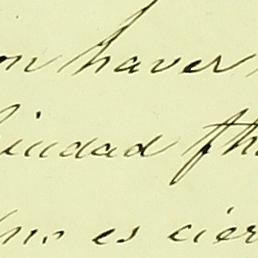 on haver
iudad fh
no es cier